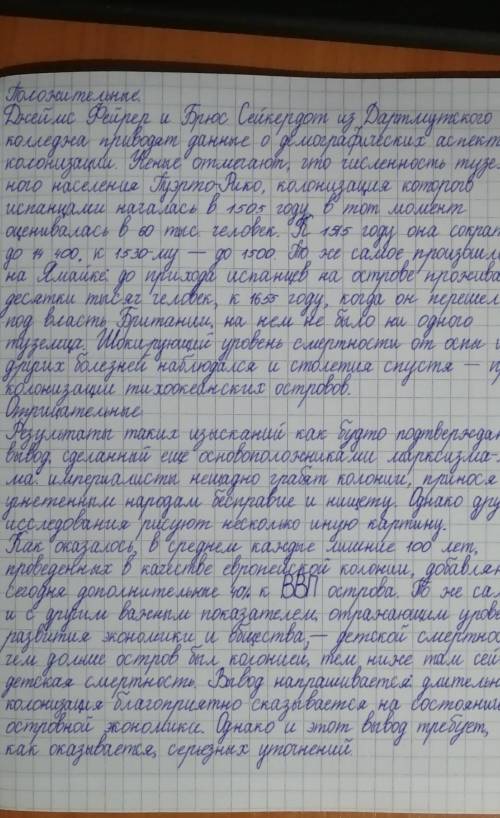 Положительные.
Джеймс Фейрер и Брюс Сейкердот из Дартмутского
колледжа приводят данные о демографических аспект
колонизации. Ученые отмечают, что численность тузе
ного населения Пуэрто-Рико, колонизация которого
испанцами началась в 1505 году, в тот момент
оценивалась в 60 тыс. человек. К 1515 году она сократ
до 14 400, к 1530-му — до 1500. То же самое произошл
на Ямайке: до прихода испанцев на острове прожива
десятки тысяч человек, к 1655 году, когда он перешел
под власть Британии, на нем не было ни одного
туземца. Шокирующий уровень смертности от оспы и
других болезней наблюдался и столетия спустя — п
колонизации тихоокеанских островов.
Отрицательные
Результаты таких изысканий как будто подтвержда
вывод, сделанный еще основоположниками марксизма-
ма: империалисты нещадно грабят колонии, принося
угнетенным народам бесправие и нищету. Однако дру
исследования рисуют несколько иную картину.
Как оказалось, в среднем каждые лишние 100 лет,
проведенных в качестве европейской колонии, добавля
сегодня дополнительные 40% к ВВП острова. То же са
и с другим важным показателем, отражающим урове
развития экономики и общества, — детской смертнос
чем дольше остров был колонией, тем ниже там сей
детская смертность. Вывод напрашивается: длительн
колонизация благоприятно сказывается на состоянии
островной экономики. Однако и этот вывод требует,
как оказывается, серьезных уточнений.